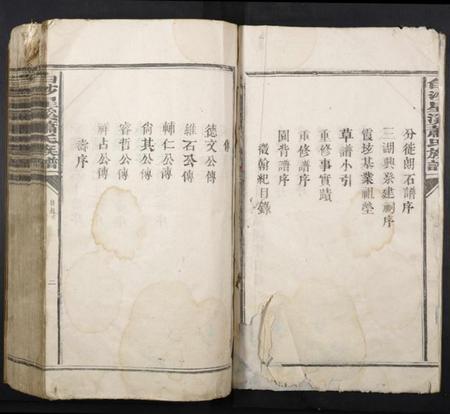 分徙朗石譜序
三湖興祭建祠序
霞垓基業祖塋
草譜小引
重修事實蹟
重修譜序
圖背譜序
徵翰紀目錄
傳
德文公傳
維石公傳
輔仁公傳
尙其公傳
睿哲公傳
祥占公傳
壽序
二